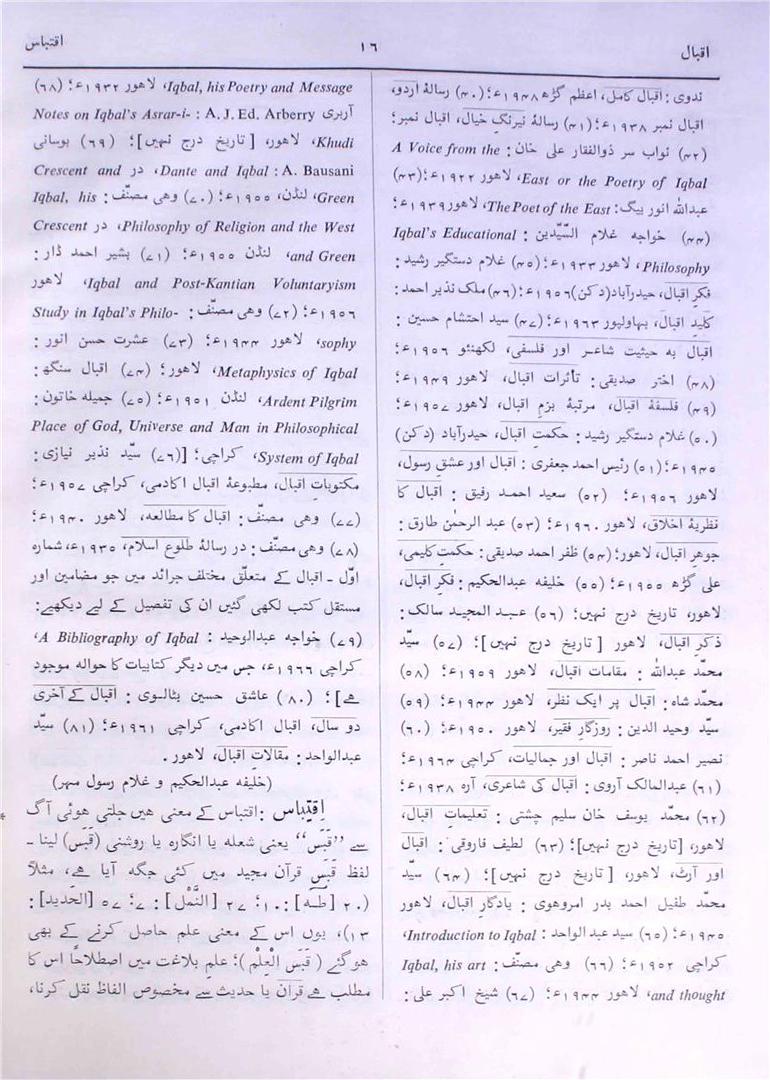 اقبال ١٦ اقتباس
ندوی : اقبال کامل، اعظم گڑھ ١٩٤٨ء؛ (٤٠) رسالۂ اردو،
اقبال نمبر ١٩٣٨ء؛ (٤١) رسالۂ نیرنگ خیال، اقبال نمبر؛
(٤٢) نواب سر ذوالفقار علی خان : A Voice from the
East or the Poetry of Iqbal، لاہور ١٩٢٢ء؛ (٤٣)
عبداللہ انور بیگ: The Poet of the East، لاہور ١٩٣٩ء؛
(٤٤) خواجہ غلام السّیّدین : Iqbal's Educational
Philosophy، لاہور ١٩٣٣ء؛ (٤٥) غلام دستگیر رشید :
فکر اقبال، حیدرآباد (دکن) ١٩٥٦ء؛ (٤٦) ملک نذیر احمد :
کلید اقبال، بہاولپور ١٩٦٣ء؛ (٤٧) سید احتشام حسین :
اقبال بہ حیثیت شاعر اور فلسفی، لکھنئو ١٩٥٦ء؛
(٤٨) اختر صدیقی : تأثرات اقبال، لاہور ١٩٤٩ء؛
(٤٩) فلسفۂ اقبال، مرتبۂ بزم اقبال، لاہور ١٩٥٧ء؛
(٥٠) غلام دستگیر رشید : حکمت اقبال، حیدرآباد (دکن)
١٩٤٥ء؛ (٥١) رئیس احمد جعفری : اقبال اور عشق رسول،
لاہور ١٩٥٦ء؛ (٥٢) سعید احمد رفیق : اقبال کا
نظریۂ اخلاق، لاہور ١٩٦٠ء؛ (٥٣) عبد الرحمٰن طارق :
جوہر اقبال، لاہور؛ (٥٤) ظفر احمد صدیقی : حکمت کلیمی،
علی گڑھ ١٩٥٥ء؛ (٥٥) خلیفہ عبدالحکیم : فکر اقبال،
لاہور، تاریخ درج نہیں؛ (٥٦) عبد المجید سالک :
ذکر اقبال، لاہور [ تاریخ درج نہیں]؛ (٥٧) سیّد
محمّد عبداللہ : مقامات اقبال، لاہور ١٩٥٩ء؛ (٥٨)
محمّد شاہ : اقبال پر ایک نظر، لاہور ١٩٤٤ء؛ (٥٩)
سیّد وحید الدین : روزگار فقیر، لاہور ١٩٥٠ء؛ (٦٠)
نصیر احمد ناصر : اقبال اور جمالیات، کراچی ١٩٦٤ء؛
(٦١) عبدالمالک آروی : اقبال کی شاعری، آرہ ١٩٣٨ء؛
(٦٢) محمّد یوسف خان سلیم چشتی : تعلیمات اقبال،
لاہور، [تاریخ درج نہیں]؛ (٦٣) لطیف فاروقی : اقبال
اور آرٹ، لاہور، [تاریخ درج نہیں]؛ (٦٤) سیّد
محمّد طفیل احمد بدر امروہوی : یادگار اقبال، لاہور
١٩٤٥ء؛ (٦٥) سید عبد الواحد : Introduction to Iqbal،
کراچی ١٩٥٢ء؛ (٦٦) وہی مصنّف : Iqbal, his art
and thought، لاہور ١٩٤٤ء؛ (٦٧) شیخ اکبر علی :
Iqbal, his Poetry and Message، لاہور ١٩٣٢ء؛ (٦٨)
آربری A. J. Ed. Arberry : Notes on Iqbal's Asrar-i-
Khudi، لاہور، [ تاریخ درج نہیں]؛ (٦٩) بوسانی
A. Bausani : Dante and Iqbal، در Crescent and
Green، لنڈن، ١٩٥٥ء؛ (٧٠) وہی مصنّف : Iqbal, his
Philosophy of Religion and the West، در Crescent
and Green، لنڈن ١٩٥٥ء؛ (٧١) بشیر احمد ڈار :
Iqbal and Post-Kantian Voluntaryism، لاہور
١٩٥٦ء؛ (٧٢) وہی مصنّف : Study in Iqbal's Philo-
sophy، لاہور ١٩٤٤ء؛ (٧٣) عشرت حسن انور :
Metaphysics of Iqbal، لاہور؛ (٧٤) اقبال سنگھ :
Ardent Pilgrim، لنڈن ١٩٥١ء؛ (٧٥) جمیلہ خاتون :
Place of God, Universe and Man in Philosophical
System of Iqbal، کراچی؛ [(٧٦) سیّد نذیر نیازی :
مکتوبات اقبال، مطبوعۂ اقبال اکادمی، کراچی ١٩٥٧ء؛
(٧٧) وہی مصنّف : اقبال کا مطالعہ، لاہور ١٩٤٠ء؛
(٧٨) وہی مصنّف : در رسالۂ طلوع اسلام، ١٩٣٥ء، شمارہ
اوّل ۔ اقبال کے متعلّق مختلف جرائد میں جو مضامین اور
مستقل کتب لکھی گئیں ان کی تفصیل کے لیے دیکھیے :
(٧٩) خواجہ عبدالوحید : A Bibliography of Iqbal،
کراچی ١٩٦٦ء، جس میں دیگر کتابیات کا حوالہ موجود
ہے]؛ (٨٠) عاشق حسین بٹالوی : اقبال کے آخری
دو سال، اقبال اکادمی، کراچی ١٩٦١ء؛ (٨١) سیّد
عبدالواحد : مقالات اقبال، لاہور .
(خلیفہ عبدالحکیم و غلام رسول مہر)
* اِقْتِباس : اقتباس کے معنی ہیں جلتی ہوئی آگ
سے ”قَبَس“ یعنی شعلہ یا انگارہ یا روشنی (قَبَس) لینا ۔
لفظ قَبَس قرآن مجید میں کئی جگہ آیا ہے، مثلاً
(٢٠ [طٰہٰ] : ١٠؛ ٢٧ [النَّمْل] : ٧؛ ٥٧ [الحَدید] :
١٣)، یوں اس کے معنی علم حاصل کرنے کے بھی
ہوگئے (قَبَسَ الْعِلْم)؛ علم بلاغت میں اصطلاحًا اس کا
مطلب ہے قرآن یا حدیث سے مخصوص الفاظ نقل کرنا،